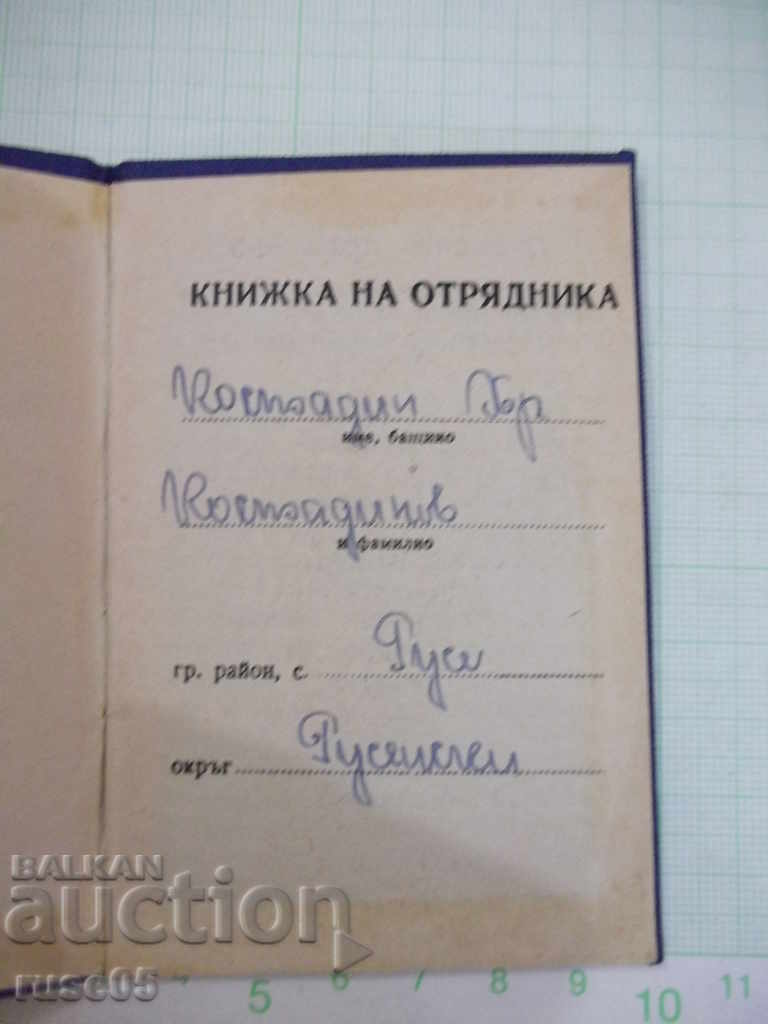 КНИЖКА НА ОТРЯДНИКА
Костадин Хр
име, башино
Костадинов
и фамилно
гр. район, с. Русе
окръг Русенски
BALKAN
auction
ruse05
5 6 7 8 9 10 11